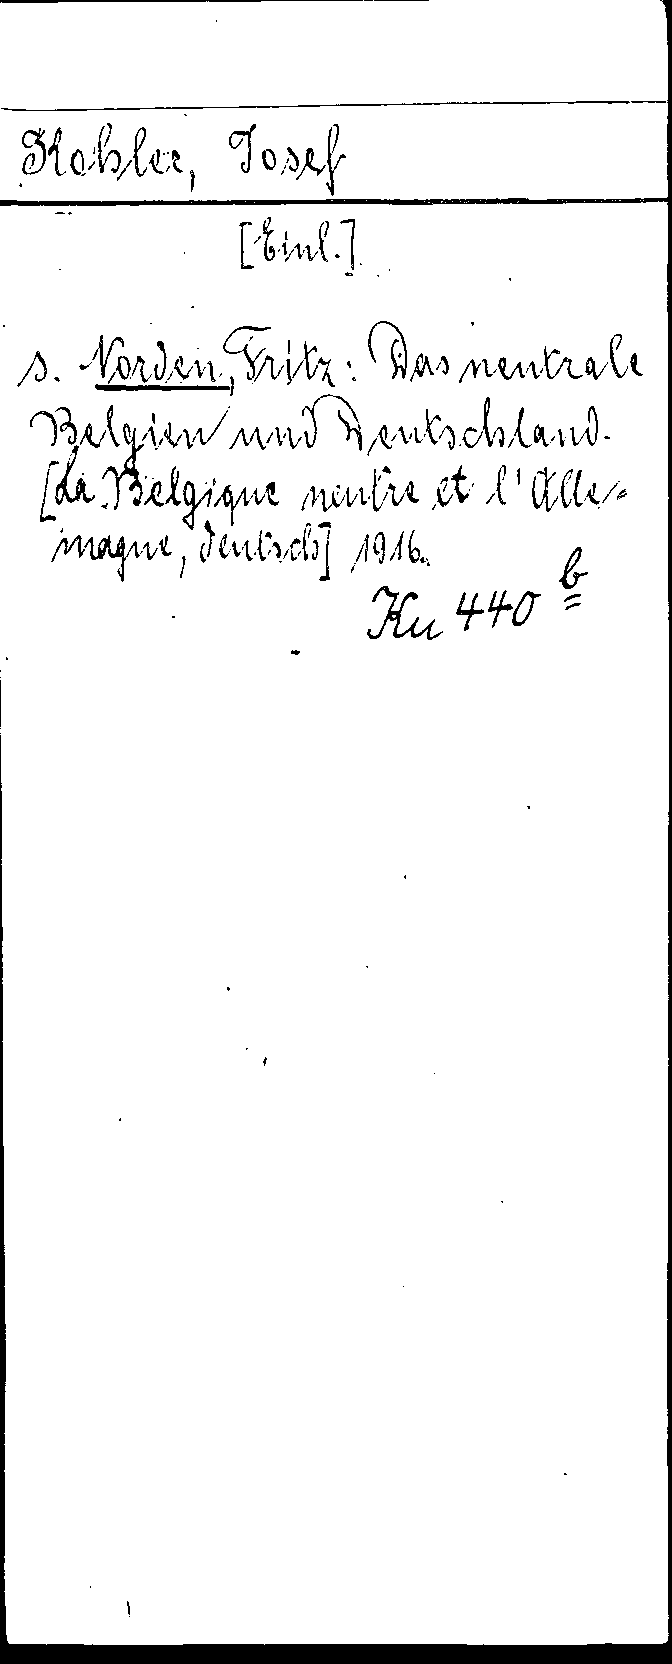 Kohler, Josef
[Einl.]
s. Norden, Fritz: Das neutrale
Belgien und Deutschland.
[La Belgique neutre et l'Alle-
magne, deutsch] 1916.
Ku 440 b